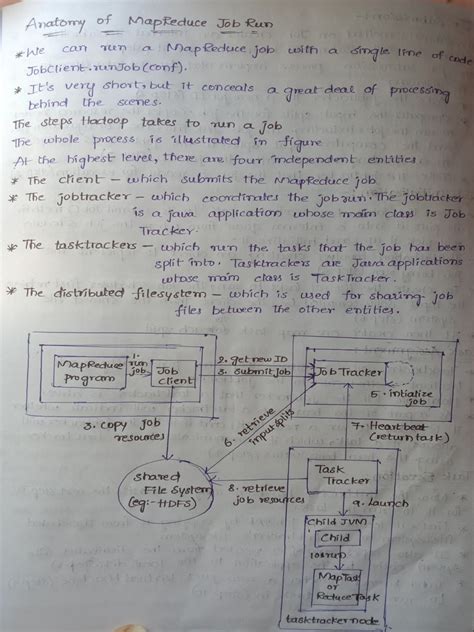 Anatomy of MapReduce Job Run
* We can run a MapReduce job with a single line of code
JobClient.runJob(conf).
* It's very short, but it conceals a great deal of processing
behind the scenes.
The steps Hadoop takes to run a job
The whole process is illustrated in figure
At the highest level, there are four independent entities.
* The client – which submits the MapReduce job
* The jobtracker – which coordinates the job run. The jobtracker
is a java application whose main class is Job
Tracker.
* The tasktrackers – which run the tasks that the job has been
split into. Tasktrackers are Java applications
whose main class is TaskTracker.
* The distributed filesystem – which is used for sharing job
files between the other entities.
MapReduce
Program
1.
run
job
Job
client
2. get new ID
5. submit job
Job Tracker
5. intialize
job
3. copy job
resources
6. retrieve
input splits
7. Heartbeat
(return task)
Shared
File System
(eg:- HDFS)
8. retrieve
job resources
Task
Tracker
9. Launch
Child JVM
Child
10. run
MapTask
or
ReduceTask
tasktracker node